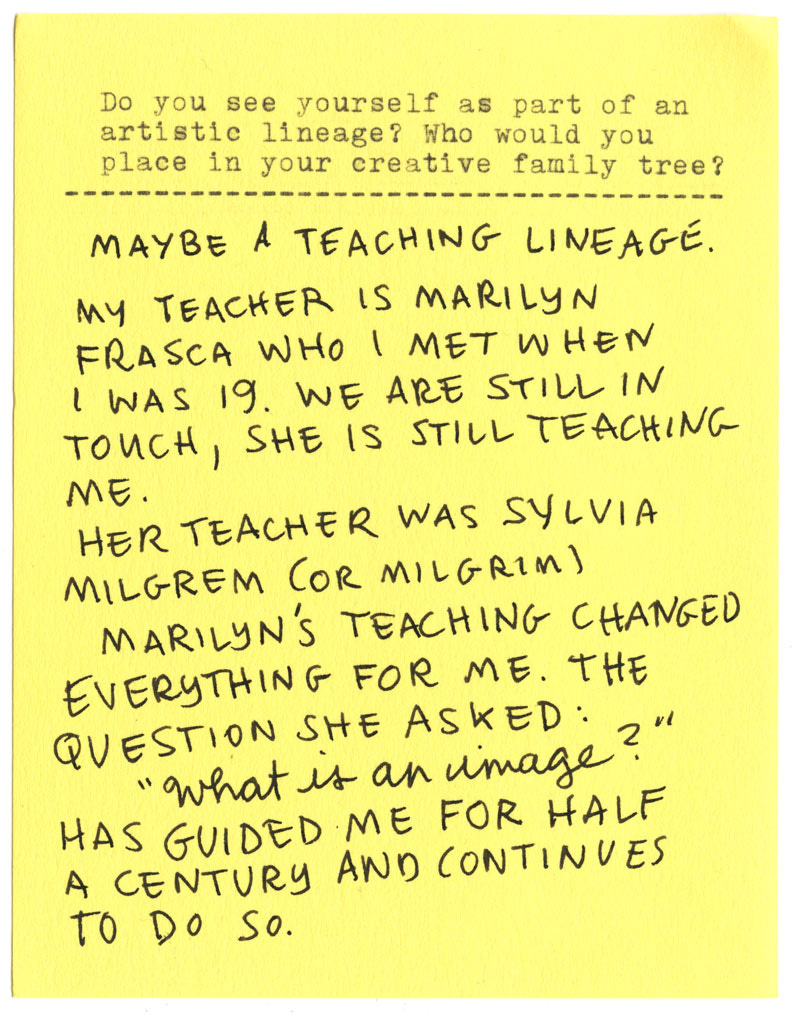 Do you see yourself as part of an
artistic lineage? Who would you
place in your creative family tree?
MAYBE A TEACHING LINEAGE.
MY TEACHER IS MARILYN
FRASCA WHO I MET WHEN
I WAS 19. WE ARE STILL IN
TOUCH, SHE IS STILL TEACHING
ME.
HER TEACHER WAS SYLVIA
MILGREM (OR MILGRIM)
MARILYN'S TEACHING CHANGED
EVERYTHING FOR ME. THE
QUESTION SHE ASKED:
"What is an image?"
HAS GUIDED ME FOR HALF
A CENTURY AND CONTINUES
TO DO SO.